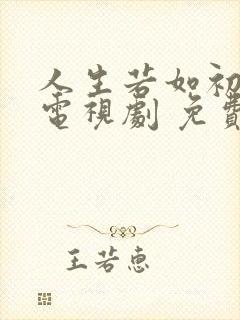 人生若如初
電視劇 免費
王若惠